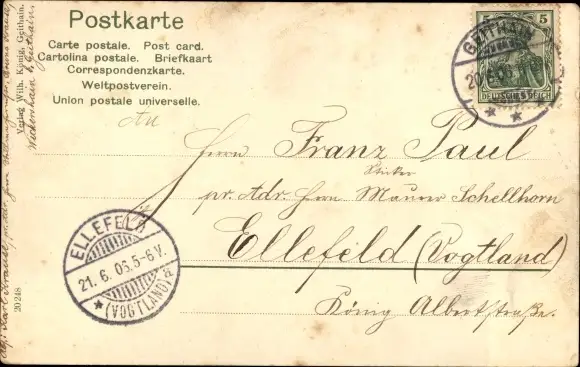 Postkarte
Carte postale. Post card.
Cartolina postale. Briefkaart
Correspondenzkarte.
Weltpostverein.
Union postale universelle.
5 5
DEUTSCHES REICH
GEITHAIN
An
Herrn Franz Paul
pr. Adr. Herrn Maurer Schellhorn
Ellefeld (Vogtland)
König Albertstraße.
ELLEFELD
21. 6. 05. 5-6 V.
(VOGTLAND)
Verlag Wilh. König, Geithain.
20248
Wickershain b. Geithain.